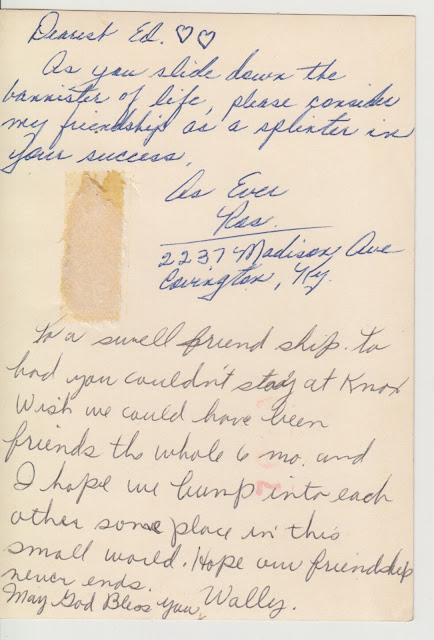 Dearest Ed. ♡♡
As you slide down the
bannister of life, please consider
my friendship as a splinter in
your success.
As Ever
Ros.
2237 Madison Ave
Covington, Ky.
To a swell friend ship. to
bad you couldn't stay at Knox
Wish we could have been
friends the whole 6 mo. and
I hope we bump into each
other some place in this
small world. Hope our friendship
never ends.
May God Bless you, Wally.